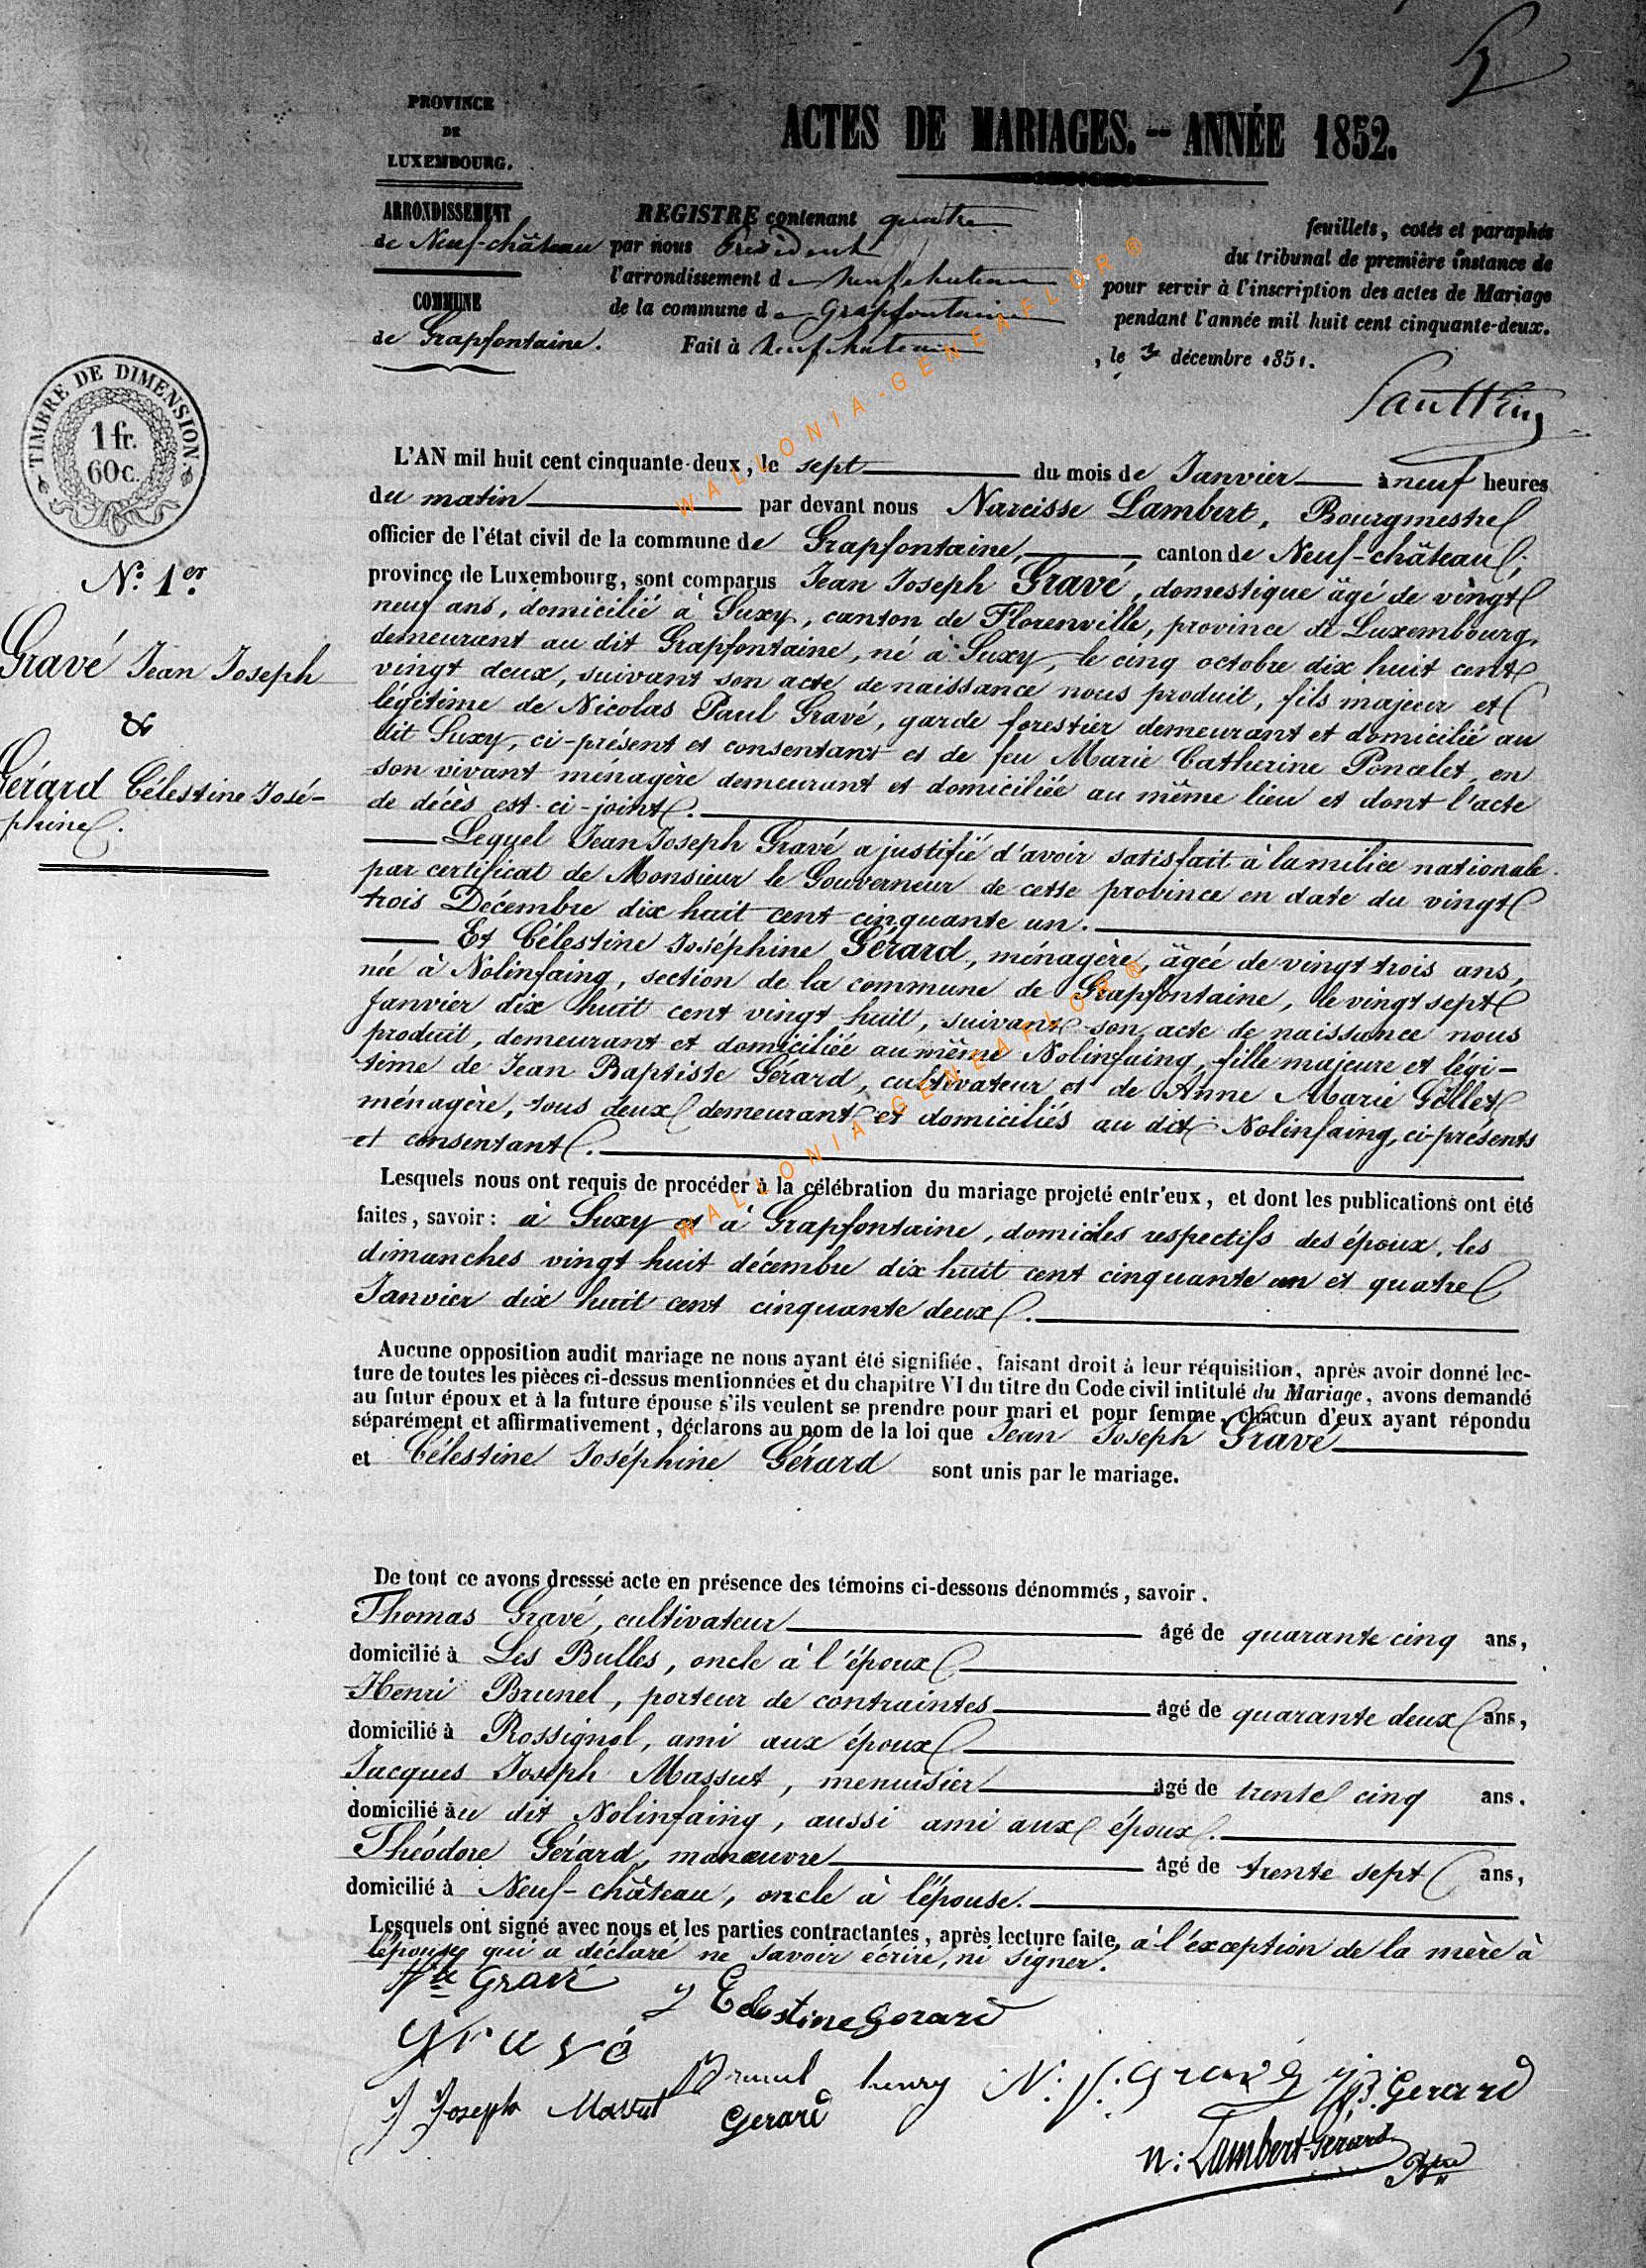 PROVINCE
DE
LUXEMBOURG.
ARRONDISSEMENT
de Neuf-château
COMMUNE
de Grapfontaine.
ACTES DE MARIAGES. — ANNÉE 1852.
REGISTRE contenant quatre feuillets, cotés et paraphés
par nous Président du tribunal de première instance de
l'arrondissement de Neufchateau pour servir à l'inscription des actes de Mariage
de la commune de Grapfontaine pendant l'année mil huit cent cinquante-deux.
Fait à Neufchateau, le décembre 1851.
TIMBRE DE DIMENSION
1 fr.
60 c.
N.º 1er.
Gravé Jean Joseph
&
Gérard Célestine José-
phine.
L'AN mil huit cent cinquante-deux, le sept du mois de Janvier à neuf heures
du matin par devant nous Narcisse Lambert, Bourgmestre
officier de l'état civil de la commune de Grapfontaine, canton de Neuf-château,
province de Luxembourg, sont comparus Jean Joseph Gravé, domestique âgé de vingt
neuf ans, domicilié à Suxy, canton de Florenville, province de Luxembourg,
demeurant au dit Grapfontaine, né à Suxy, le cinq octobre dix huit cent
vingt deux, suivant son acte de naissance nous produit, fils majeur et
légitime de Nicolas Paul Gravé, garde forestier demeurant et domicilié au
dit Suxy, ci-présent et consentant et de feu Marie Catherine Poncelet, en
son vivant ménagère demeurant et domiciliée au même lieu et dont l'acte
de décès est ci-joint.
Lequel Jean Joseph Gravé a justifié d'avoir satisfait à la milice nationale
par certificat de Monsieur le Gouverneur de cette province en date du vingt
trois Décembre dix huit cent cinquante un.
Et Célestine Joséphine Gérard, ménagère, âgée de vingt trois ans,
née à Nolinfaing, section de la commune de Grapfontaine, le vingt sept
Janvier dix huit cent vingt huit, suivant son acte de naissance nous
produit, demeurant et domiciliée au même Nolinfaing, fille majeure et légi-
time de Jean Baptiste Gérard, cultivateur et de Anne Marie Gollet
ménagère, tous deux demeurant et domiciliés au dit Nolinfaing, ci-présents
et consentant.
Lesquels nous ont requis de procéder à la célébration du mariage projeté entr'eux, et dont les publications ont été
faites, savoir: à Suxy et à Grapfontaine, domiciles respectifs des époux, les
dimanches vingt huit décembre dix huit cent cinquante un et quatre
Janvier dix huit cent cinquante deux.
Aucune opposition audit mariage ne nous ayant été signifiée, faisant droit à leur réquisition, après avoir donné lec-
ture de toutes les pièces ci-dessus mentionnées et du chapitre VI du titre du Code civil intitulé du Mariage, avons demandé
au futur époux et à la future épouse s'ils veulent se prendre pour mari et pour femme, chacun d'eux ayant répondu
séparément et affirmativement, déclarons au nom de la loi que Jean Joseph Gravé
et Célestine Joséphine Gérard sont unis par le mariage.
De tout ce avons dresssé acte en présence des témoins ci-dessous dénommés, savoir.
Thomas Gravé, cultivateur âgé de quarante cinq ans,
domicilié à Les Bulles, oncle à l'époux
Henri Brunel, porteur de contraintes âgé de quarante deux ans,
domicilié à Rossignol, ami aux époux
Jacques Joseph Massut, menuisier âgé de trente cinq ans.
domicilié au dit Nolinfaing, aussi ami aux époux.
Théodore Gérard, manœuvre âgé de trente sept ans,
domicilié à Neuf-château, oncle à l'épouse.
Lesquels ont signé avec nous et les parties contractantes, après lecture faite, à l'exception de la mère à
l'épouse qui a déclaré ne savoir écrire, ni signer.
Gravé
Celestine Gerard
Gravé
Brunel henry N: P: Gravé J B. Gerard
J Joseph Massut Gerard
N: Lambert-Gérard
WALLONIA-GENEAFLOR®
WALLONIA-GENEAFLOR®